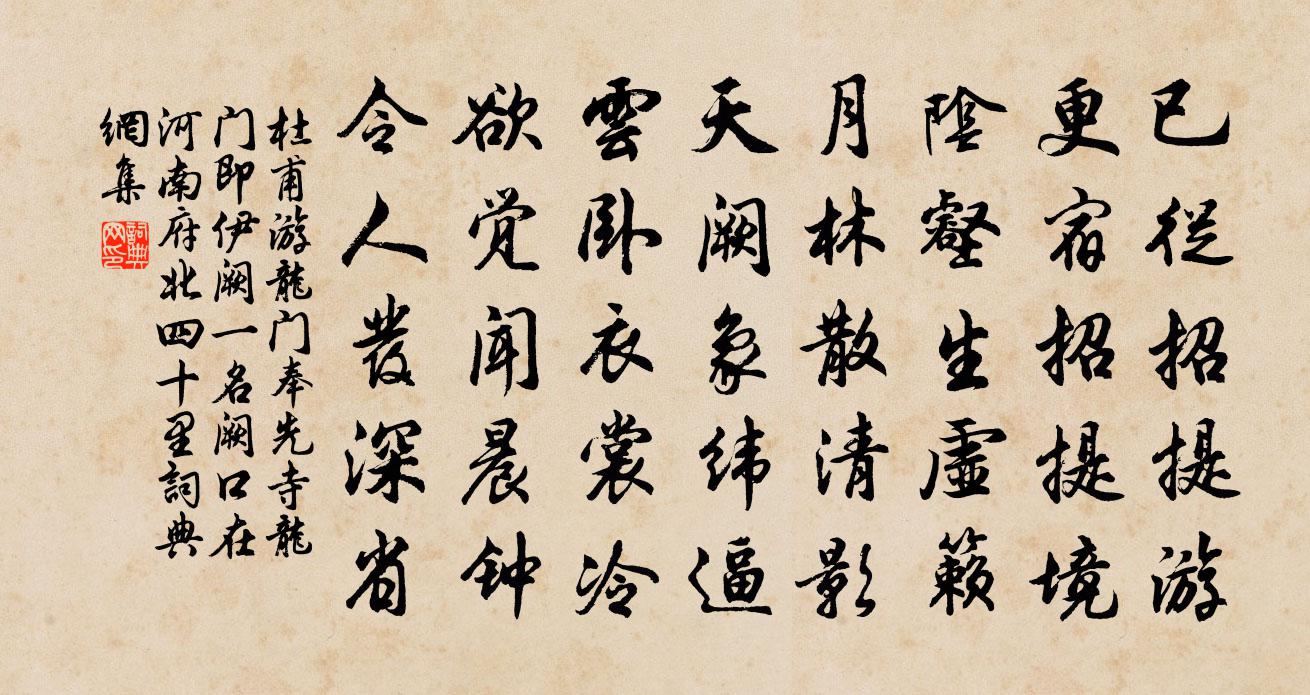 已從招提游
更宿招提境
陰壑生虛籟
月林散清影
天阙象纬逼
雲卧衣裳冷
欲觉闻晨钟
令人發深省
杜甫游龍门奉先寺龍
门即伊阙一名阙口在
河南府北四十里詞典
網集
詞典
网印